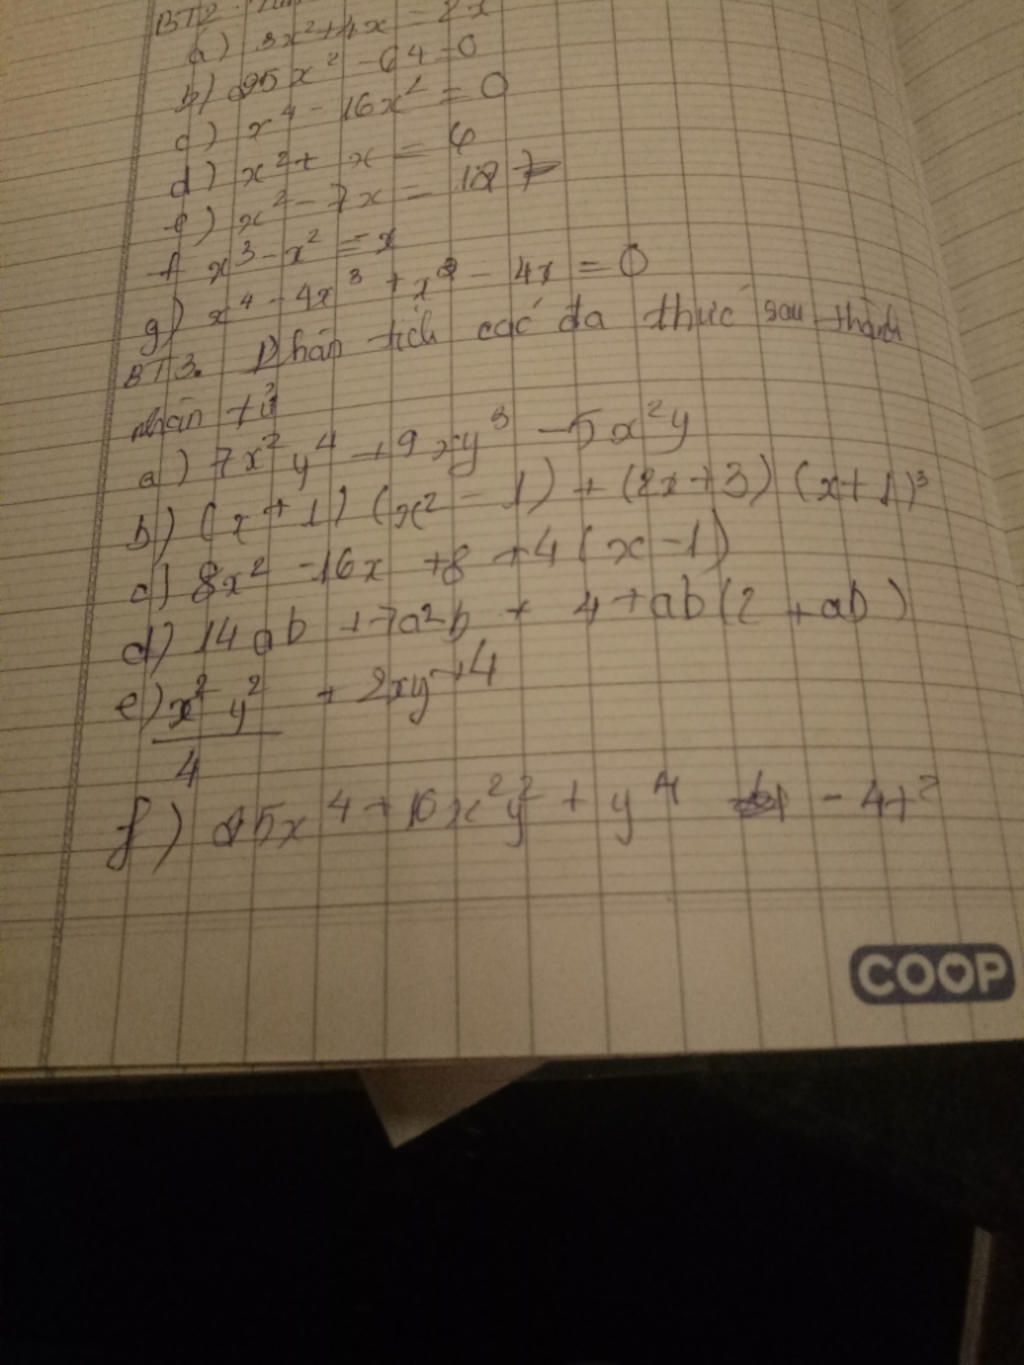 BT2.
a) 3x² + 4x = 2x
b) 25x² - 64 = 0
c) x⁴ - 16x² = 0
d) x² + x = 6
e) x² - 7x =
f x³ - x² = x
g) x⁴ - 4x³ + x² - 4x = 0
BT3. Phân tích các đa thức sau thành
nhân tử
a) 7x²y⁴ + 9xy³ - 5x²y
b) (x + 1) (x² - 1) + (2x + 3) (x + 1)³
c) 8x² - 16x + 8 + 4(x - 1)
d) 14ab + 7a²b + 4 + ab(2 + ab)
e) x²y²/4 + 2xy + 4
f) 25x⁴ + 10x²y² + y⁴ - 4t²
COOP